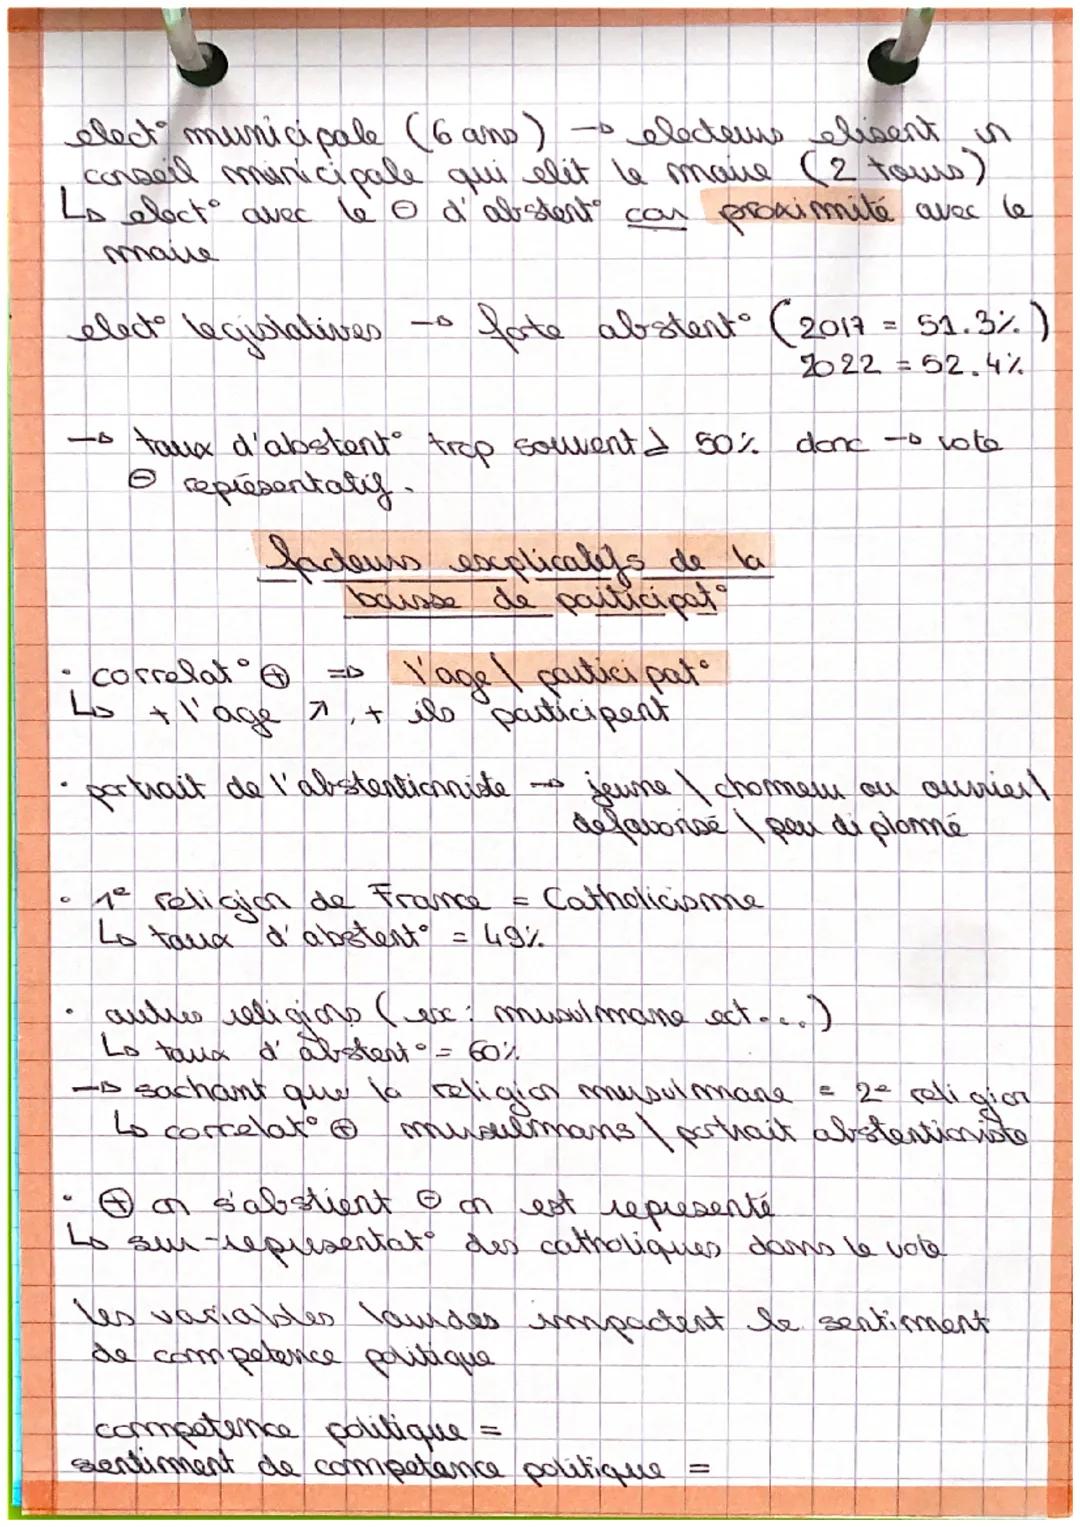 elect° municipale (6 ans) → electeurs elisent un
conseil municipale qui elit le maire (2 tours)
↳ elect° avec le ⊖ d'abstent° car proximité avec le
maire
elect° legislatives → forte abstent° (2017 = 51.3%)
2022 = 52.4%
→ taux d'abstent° trop souvent ≥ 50% donc → vote
⊖ représentatif.
facteurs explicatifs de la
baisse de participat°
· correlat° ⊕ => l'age \ participat°
↳ + l'age ↗, + ils participent
· portrait de l'abstentionniste → jeune \ chomeur ou ouvrier \
defavorisé \ peu diplomé
· 1e religion de France = Catholicisme
↳ taux d'abstent° = 49%
· autres religions (ex : musulmane ect...)
↳ taux d'abstent° = 60%
→ sachant que la religion musulmane = 2e religion
↳ correlat° ⊕ musulmans \ portrait abstentioniste
· ⊕ on s'abstient ⊖ on est representé
↳ sur-representat° des catholiques dans le vote
les variables lourdes impactent le sentiment
de competence politique
competence politique =
sentiment de competence politique =